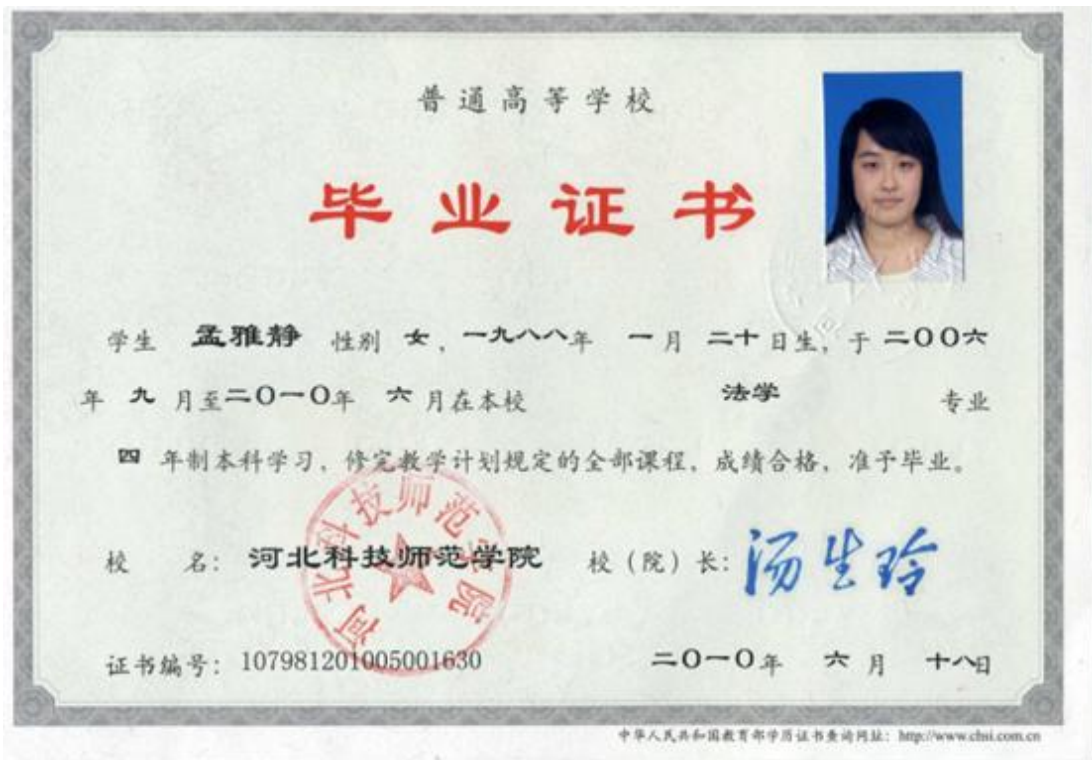 普通高等学校
毕业证书
学生 孟雅静 性别 女，一九八八年 一月 二十日生，于二〇〇六
年 九 月至二〇一〇年 六 月在本校 法学 专业
四 年制本科学习，修完教学计划规定的全部课程，成绩合格，准予毕业。
校 名：河北科技师范学院 校（院）长：汤生玲
河北科技师范学院
证书编号：107981201005001630 二〇一〇年 六月 十八日
中华人民共和国教育部学历证书查询网址：http://www.chsi.com.cn